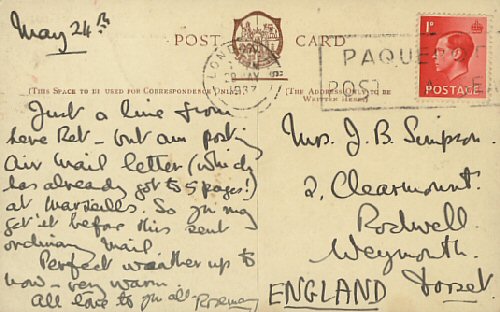 May 24th
POST CARD
LONDON
MY
1937
PAQUE
POST
1D
POSTAGE
(THIS SPACE TO BE USED FOR CORRESPONDENCE ONLY.)
(THE ADDRESS ONLY TO BE
WRITTEN HERE.)
Just a line from
here Ret - but am posting
Air Mail letter (which
has already got to 5 pages!)
at Marseills. So you may
get it before this sent
ordinary mail
Perfect weather up to
now - very warm
All love to you all - Rosemary
Mrs. J. B. Simpson.
2. Clearmount.
Rodwell.
Weymouth.
ENGLAND Dorset